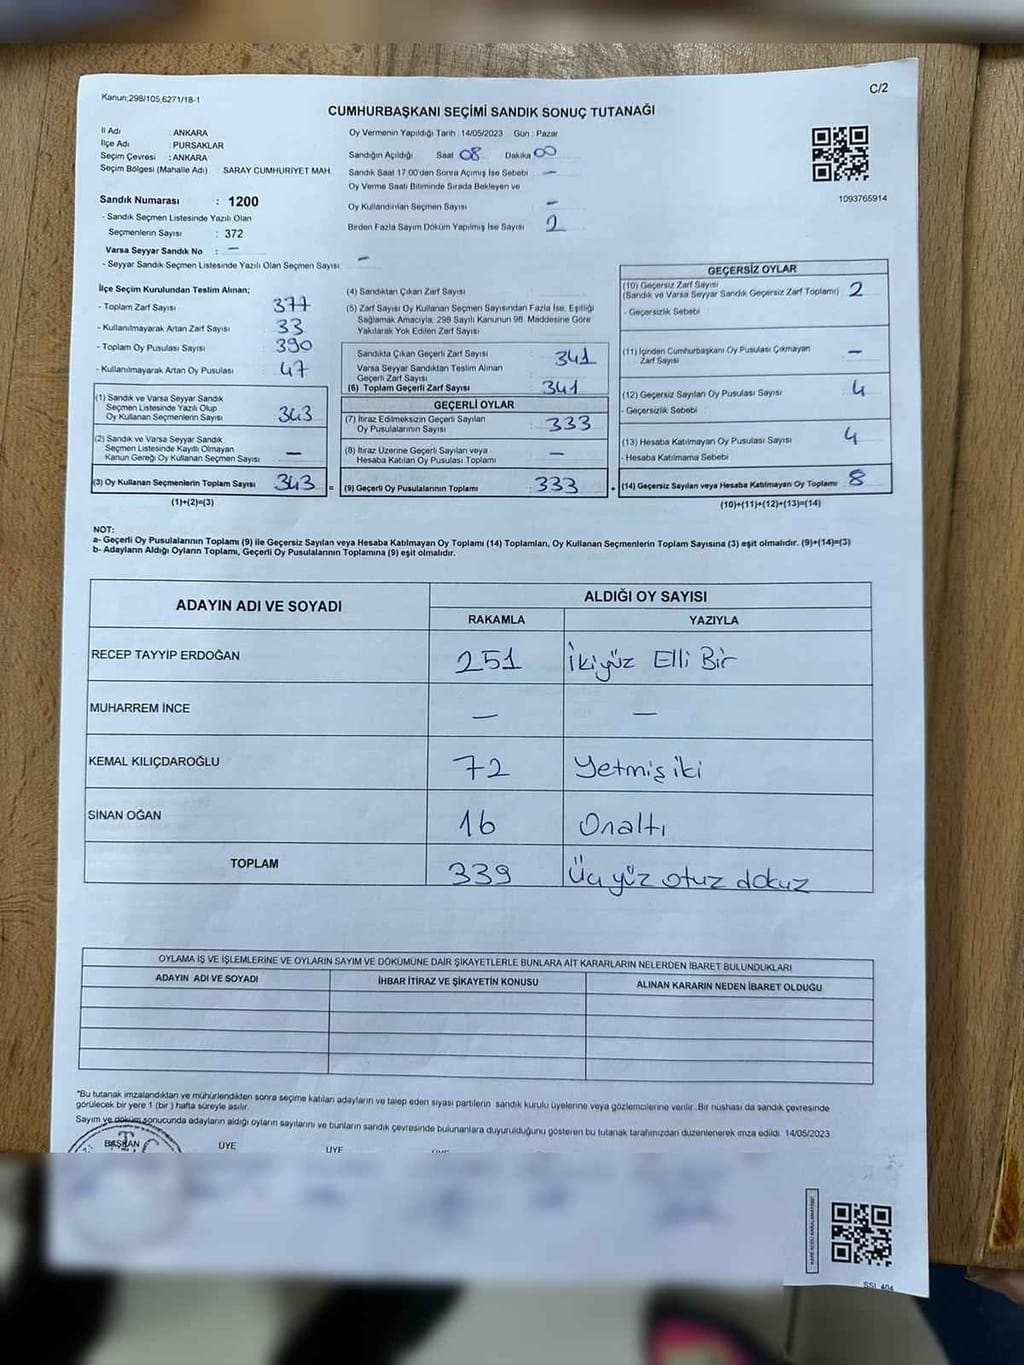 Kanun;298/105,6271/18-1
C/2
CUMHURBAŞKANI SEÇİMİ SANDIK SONUÇ TUTANAĞI
İl Adı : ANKARA
İlçe Adı : PURSAKLAR
Seçim Çevresi : ANKARA
Seçim Bölgesi (Mahalle Adı) SARAY CUMHURİYET MAH.
Oy Vermenin Yapıldığı Tarih : 14/05/2023 Gün : Pazar
Sandığın Açıldığı Saat 08 Dakika 00
Sandık Saat 17.00'den Sonra Açılmış İse Sebebi —
Oy Verme Saati Bitiminde Sırada Bekleyen ve
Oy Kullandırılan Seçmen Sayısı —
Birden Fazla Sayım Döküm Yapılmış İse Sayısı 2
1093765914
Sandık Numarası : 1200
- Sandık Seçmen Listesinde Yazılı Olan
Seçmenlerin Sayısı : 372
Varsa Seyyar Sandık No : —
- Seyyar Sandık Seçmen Listesinde Yazılı Olan Seçmen Sayısı : —
İlçe Seçim Kurulundan Teslim Alınan;
- Toplam Zarf Sayısı : 377
- Kullanılmayarak Artan Zarf Sayısı : 33
- Toplam Oy Pusulası Sayısı : 390
- Kullanılmayarak Artan Oy Pusulası : 47
(1) Sandık ve Varsa Seyyar Sandık
Seçmen Listesinde Yazılı Olup
Oy Kullanan Seçmenlerin Sayısı : 343
(2) Sandık ve Varsa Seyyar Sandık
Seçmen Listesinde Kayıtlı Olmayan
Kanun Gereği Oy Kullanan Seçmen Sayısı : —
(3) Oy Kullanan Seçmenlerin Toplam Sayısı : 343
(1)+(2)=(3)
(4) Sandıktan Çıkan Zarf Sayısı
(5) Zarf Sayısı Oy Kullanan Seçmen Sayısından Fazla İse, Eşitliği
Sağlamak Amacıyla; 298 Sayılı Kanunun 98. Maddesine Göre
Yakılarak Yok Edilen Zarf Sayısı
Sandıkta Çıkan Geçerli Zarf Sayısı : 341
Varsa Seyyar Sandıktan Teslim Alınan
Geçerli Zarf Sayısı
(6) Toplam Geçerli Zarf Sayısı : 341
GEÇERLİ OYLAR
(7) İtiraz Edilmeksizin Geçerli Sayılan
Oy Pusulalarının Sayısı : 333
(8) İtiraz Üzerine Geçerli Sayılan veya
Hesaba Katılan Oy Pusulası Toplamı : —
= (9) Geçerli Oy Pusulalarının Toplamı : 333
GEÇERSİZ OYLAR
(10) Geçersiz Zarf Sayısı
(Sandık ve Varsa Seyyar Sandık Geçersiz Zarf Toplamı) 2
- Geçersizlik Sebebi :
(11) İçinden Cumhurbaşkanı Oy Pusulası Çıkmayan
Zarf Sayısı : —
(12) Geçersiz Sayılan Oy Pusulası Sayısı : 4
- Geçersizlik Sebebi :
(13) Hesaba Katılmayan Oy Pusulası Sayısı : 4
- Hesaba Katılmama Sebebi :
+ (14) Geçersiz Sayılan veya Hesaba Katılmayan Oy Toplamı : 8
(10)+(11)+(12)+(13)=(14)
NOT:
a- Geçerli Oy Pusulalarının Toplamı (9) ile Geçersiz Sayılan veya Hesaba Katılmayan Oy Toplamı (14) Toplamları, Oy Kullanan Seçmenlerin Toplam Sayısına (3) eşit olmalıdır. (9)+(14)=(3)
b- Adayların Aldığı Oyların Toplamı, Geçerli Oy Pusulalarının Toplamına (9) eşit olmalıdır.
ADAYIN ADI VE SOYADI ALDIĞI OY SAYISI
RAKAMLA YAZIYLA
RECEP TAYYİP ERDOĞAN 251 İkiyüz Elli Bir
MUHARREM İNCE — —
KEMAL KILIÇDAROĞLU 72 Yetmiş iki
SİNAN OĞAN 16 Onaltı
TOPLAM 339 Üç yüz otuz dokuz
OYLAMA İŞ VE İŞLEMLERİNE VE OYLARIN SAYIM VE DÖKÜMÜNE DAİR ŞİKAYETLERLE BUNLARA AİT KARARLARIN NELERDEN İBARET BULUNDUKLARI
ADAYIN ADI VE SOYADI İHBAR İTİRAZ VE ŞİKAYETİN KONUSU ALINAN KARARIN NEDEN İBARET OLDUĞU
*Bu tutanak imzalandıktan ve mühürlendikten sonra seçime katılan adayların ve talep eden siyasi partilerin sandık kurulu üyelerine veya gözlemcilerine verilir. Bir nushası da sandık çevresinde
görülecek bir yere 1 (bir) hafta süreyle asılır.
Sayım ve döküm sonucunda adayların aldığı oyların sayılarını ve bunların sandık çevresinde bulunanlara duyurulduğunu gösteren bu tutanak tarafımızdan düzenlenerek imza edildi. 14/05/2023
BAŞKAN ÜYE ÜYE
SSL 404